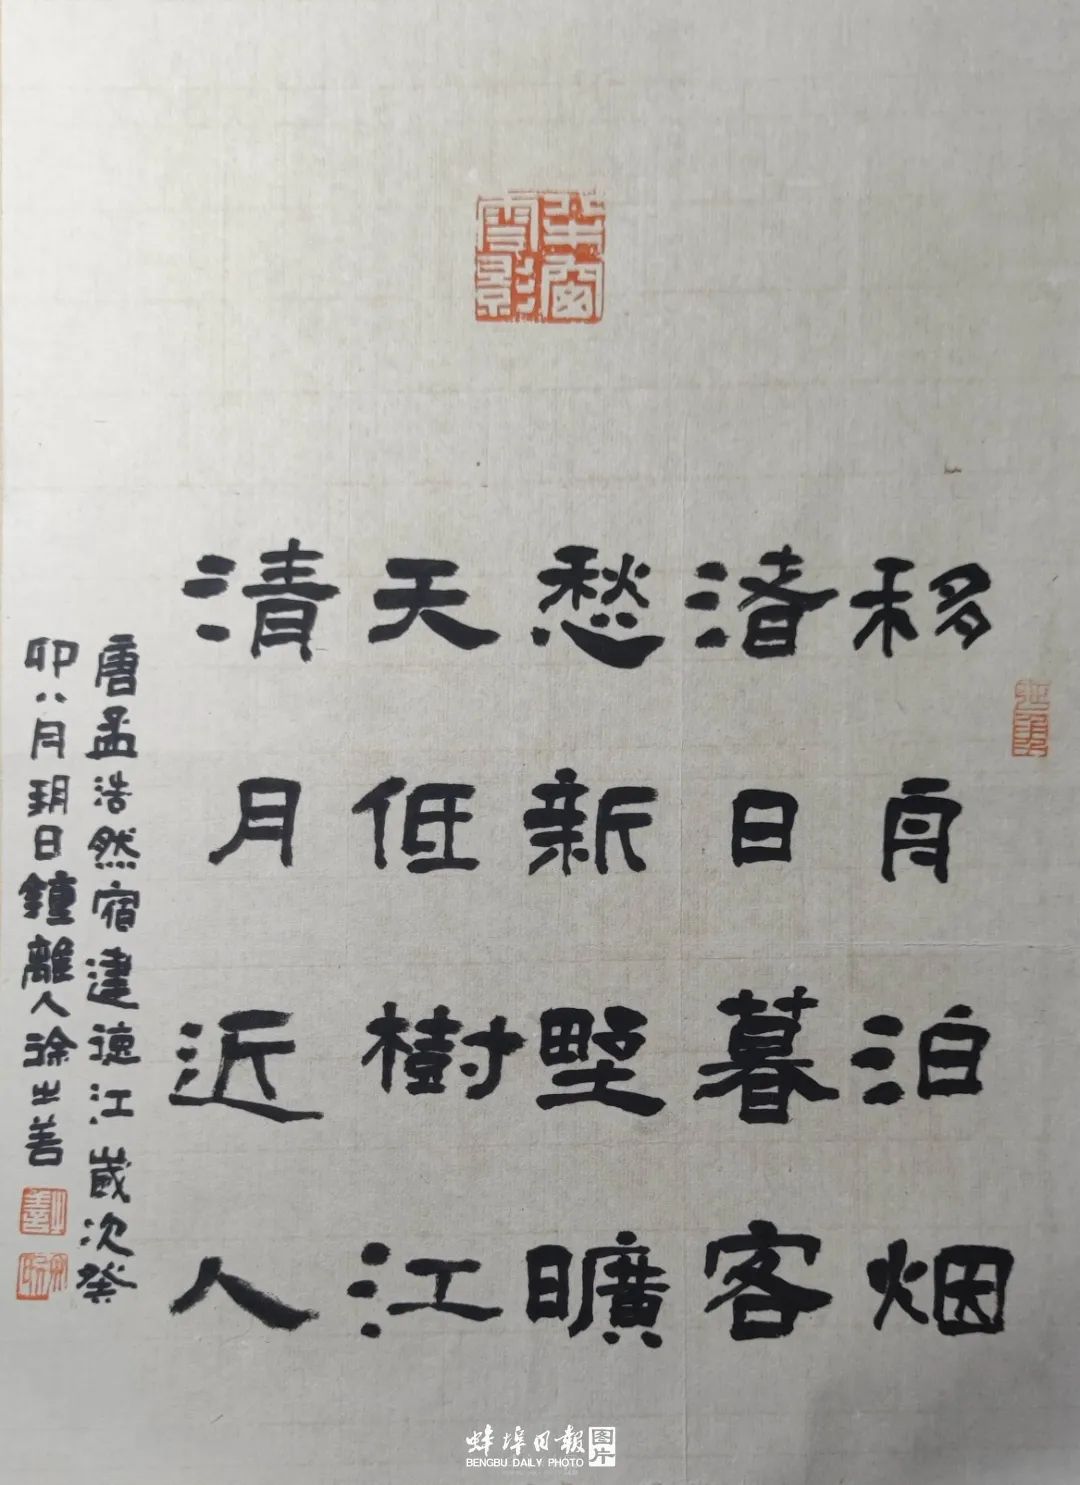 移舟泊烟
渚日暮客
愁新野曠
天低樹江
清月近人
唐孟浩然宿建德江歲次癸
卯八月玥日鐘離人徐之善
蚌埠日報 图片
BENGBU DAILY PHOTO